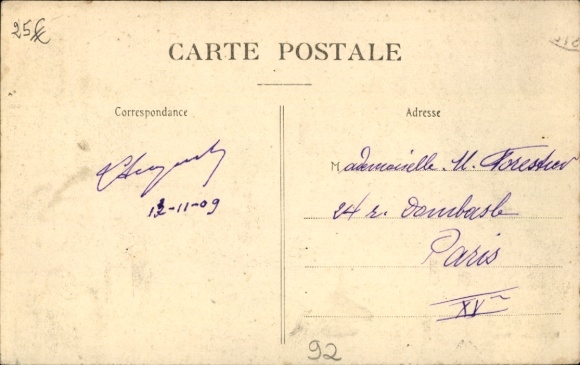 25€
CARTE POSTALE
Correspondance
Adresse
12-11-09
Mademoiselle M. Forestier
24 r. Dombasle
Paris
XVe
92